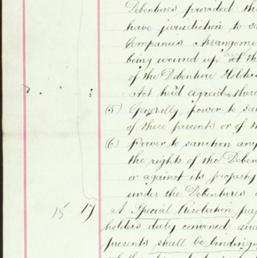 Debentures provided tha
have jurisdiction to sa
Companies Arrangeme
being wound up
of the Debenture Holde
Act had agreed there
(5) Generally power to sa
of these presents or of t
(6) Power to sanction any
the rights of the Deben
or against its property
under the Debentures
15 17 at Special Resolution pas
holders duly convened and
presents shall be binding